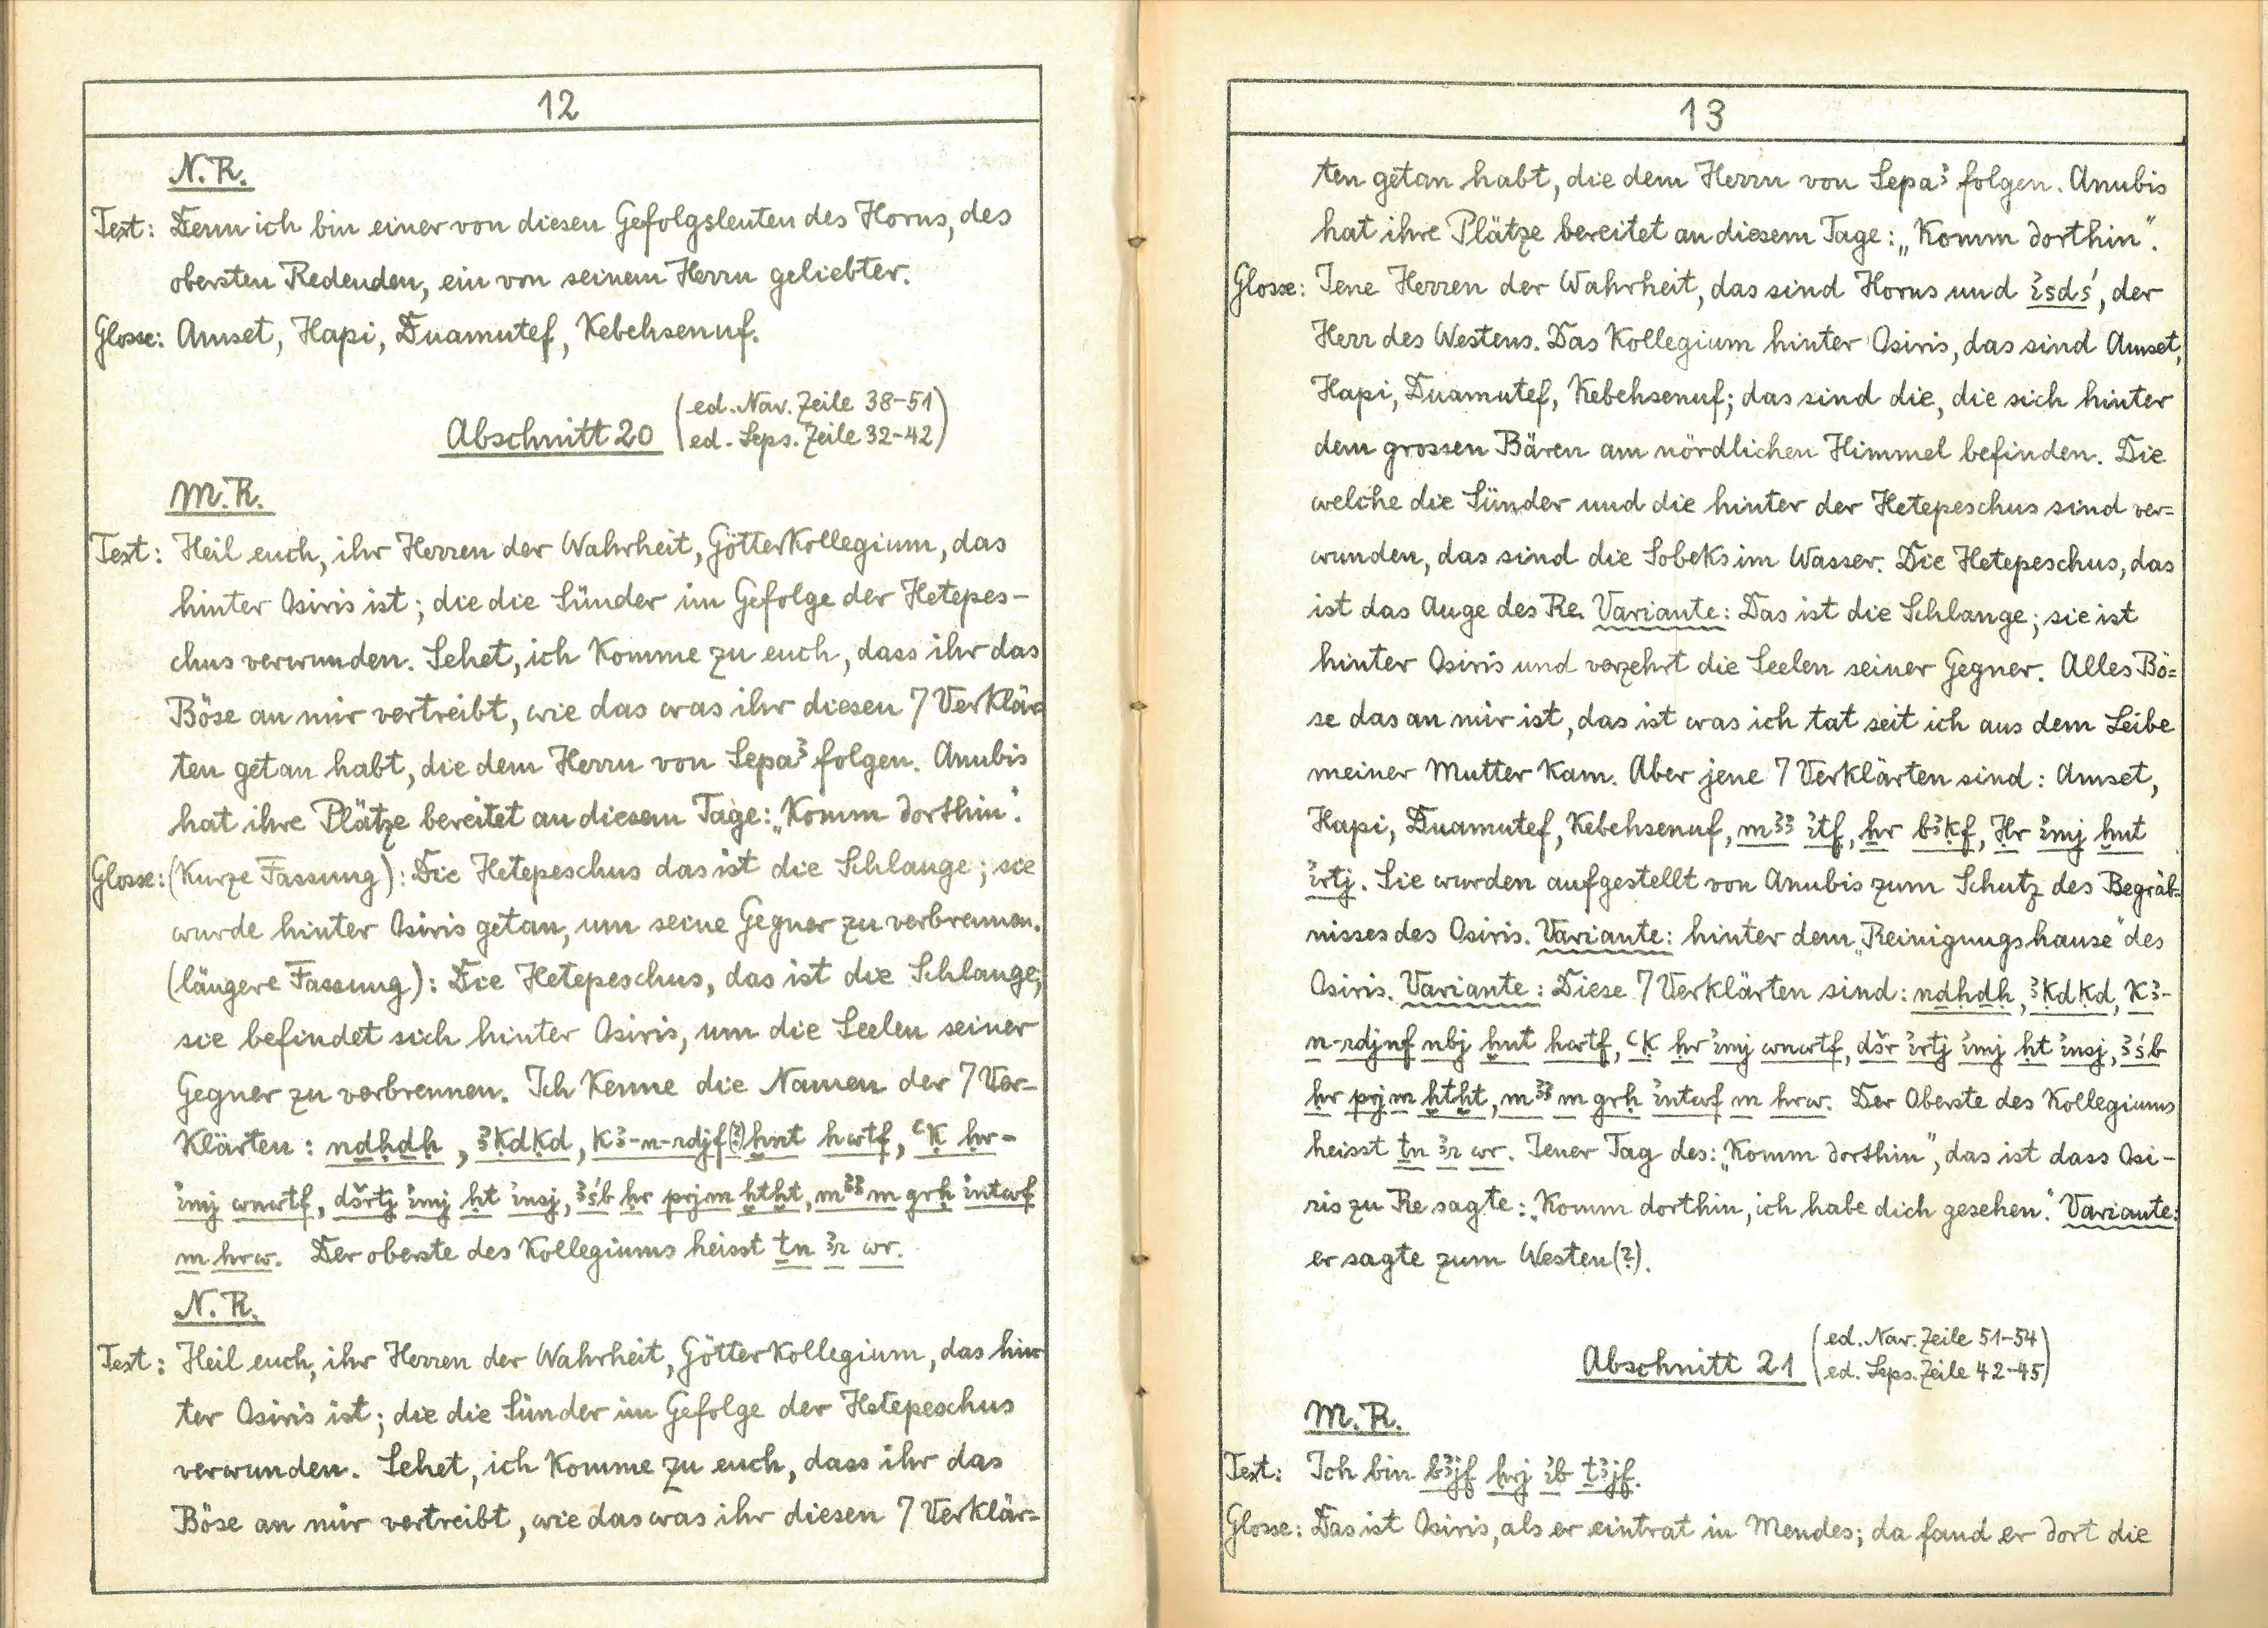 12
N.R.
Text: Denn ich bin einer von diesen Gefolgsleuten des Horus, des
obersten Redenden, ein von seinem Herrn geliebter.
Glosse: Amset, Hapi, Duamutef, Kebehsenuf.
Abschnitt 20 (ed. Nav. Zeile 38-51
ed. Leps. Zeile 32-42)
M.R.
Text: Heil euch, ihr Herren der Wahrheit, Götterkollegium, das
hinter Osiris ist; die die Sünder im Gefolge der Hetepes-
chus verwunden. Sehet, ich komme zu euch, dass ihr das
Böse an mir vertreibt, wie das was ihr diesen 7 Verklär-
ten getan habt, die dem Herrn von Sepaꜣ folgen. Anubis
hat ihre Plätze bereitet an diesem Tage: „Komm dorthin".
Glosse: (Kurze Fassung): Die Hetepeschus das ist die Schlange; sie
wurde hinter Osiris getan, um seine Gegner zu verbrennen.
(längere Fassung): Die Hetepeschus, das ist die Schlange;
sie befindet sich hinter Osiris, um die Seelen seiner
Gegner zu verbrennen. Ich kenne die Namen der 7 Ver-
klärten: nḏḥdḥ, ꜣḳdḳd, kꜣ-n-rdjf(?) ḫnt hwtf, ꜥḳ ḥr-
ỉmj wnwtf, dšrtj ỉmj ḥt ỉnsj, ꜣśb ḥr prj m ḫtḫt, mꜣꜣ m grḥ ỉntwf
m hrw. Der oberste des Kollegiums heisst ṯn ꜣr wr.
N.R.
Text: Heil euch, ihr Herren der Wahrheit, Götterkollegium, das hin-
ter Osiris ist; die die Sünder im Gefolge der Hetepeschus
verwunden. Sehet, ich komme zu euch, dass ihr das
Böse an mir vertreibt, wie das was ihr diesen 7 Verklär-
13
ten getan habt, die dem Herrn von Sepaꜣ folgen. Anubis
hat ihre Plätze bereitet an diesem Tage: „Komm dorthin".
Glosse: Jene Herren der Wahrheit, das sind Horus und ỉsdś, der
Herr des Westens. Das Kollegium hinter Osiris, das sind Amset,
Hapi, Duamutef, Kebehsenuf; das sind die, die sich hinter
dem grossen Bären am nördlichen Himmel befinden. Die
welche die Sünder und die hinter der Hetepeschus sind ver=
wunden, das sind die Sobeks im Wasser. Die Hetepeschus, das
ist das Auge des Re. Variante: Das ist die Schlange; sie ist
hinter Osiris und verzehrt die Seelen seiner Gegner. Alles Bö=
se das an mir ist, das ist was ich tat seit ich aus dem Leibe
meiner Mutter kam. Aber jene 7 Verklärten sind: Amset,
Hapi, Duamutef, Kebehsenuf, mꜣꜣ ỉtf, ẖr bꜣḳf, Ḥr ỉmj ḫnt
ỉrtj. Sie wurden aufgestellt von Anubis zum Schutz des Begräb-
nisses des Osiris. Variante: hinter dem „Reinigungshause" des
Osiris. Variante: Diese 7 Verklärten sind: nḏḥdḥ, ꜣḳdḳd, kꜣ-
n-rdjnf nbj ḫnt hwtf, ꜥḳ ḥr ỉmj wnwtf, dšr ỉrtj ỉmj ḥt ỉnsj, ꜣśb
ḥr prj m ḫtḫt, mꜣꜣ m grḥ ỉntwf m hrw. Der Oberste des Kollegiums
heisst ṯn ꜣr wr. Jener Tag des: „Komm dorthin", das ist dass Osi-
ris zu Re sagte: „Komm dorthin, ich habe dich gesehen." Variante:
er sagte zum Westen(?).
Abschnitt 21 (ed. Nav. Zeile 51-54
ed. Leps. Zeile 42-45)
M.R.
Text: Ich bin bꜣjf ḥrj ỉb ṯꜣjf.
Glosse: Das ist Osiris, als er eintrat in Mendes; da fand er dort die